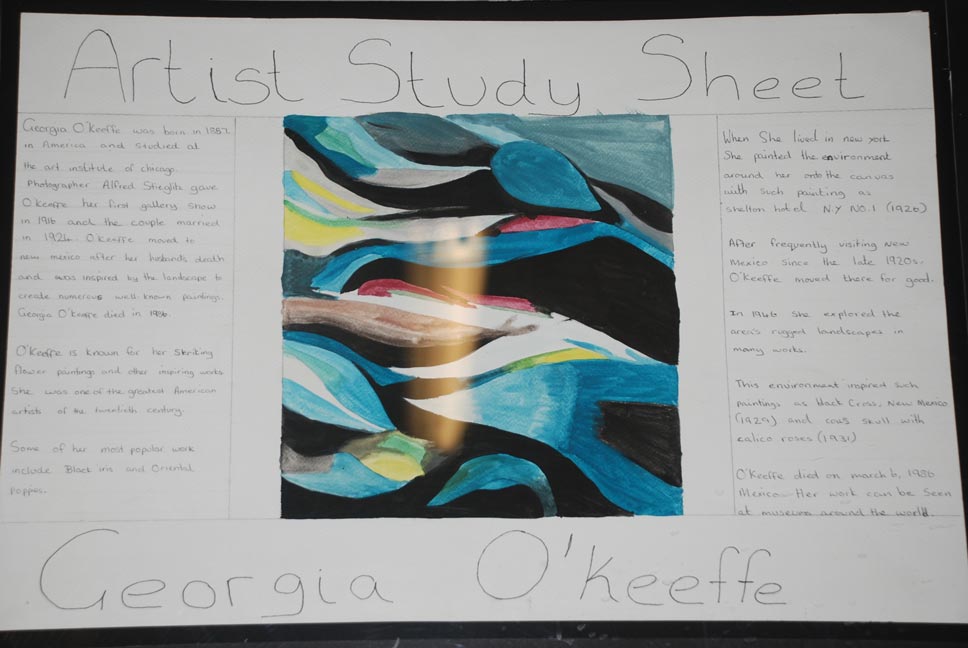 Artist Study Sheet
Georgia O'Keeffe was born in 1887
in America and studied at
the art institute of chicago.
Photographer Alfred Stieglitz gave
O'keeffe her first gallery show
in 1916 and the couple married
in 1924. O'keeffe moved to
new mexico after her husbands death
and was inspired by the landscape to
create numerous well-known paintings.
Georgia O'keeffe died in 1986.
O'Keeffe is known for her striking
flower paintings and other inspiring works
She was one of the greatest American
artists of the twentieth century.
Some of her most popular work
include Black iris and Oriental
poppies.
When She lived in new york
She painted the environment
around her onto the canvas
with such painting as
shelton hotel N.Y NO.1 (1926)
After frequently visiting New
Mexico since the late 1920s.
O'Keeffe moved there for good.
In 1946 she explored the
area's rugged landscapes in
many works.
This environment inspired such
paintings as black Cross, New Mexico
(1929) and cows skull with
calico roses (1931)
O'Keeffe died on march 6, 1986
Mexico. Her work can be seen
at museum around the world.
Georgia O'keeffe